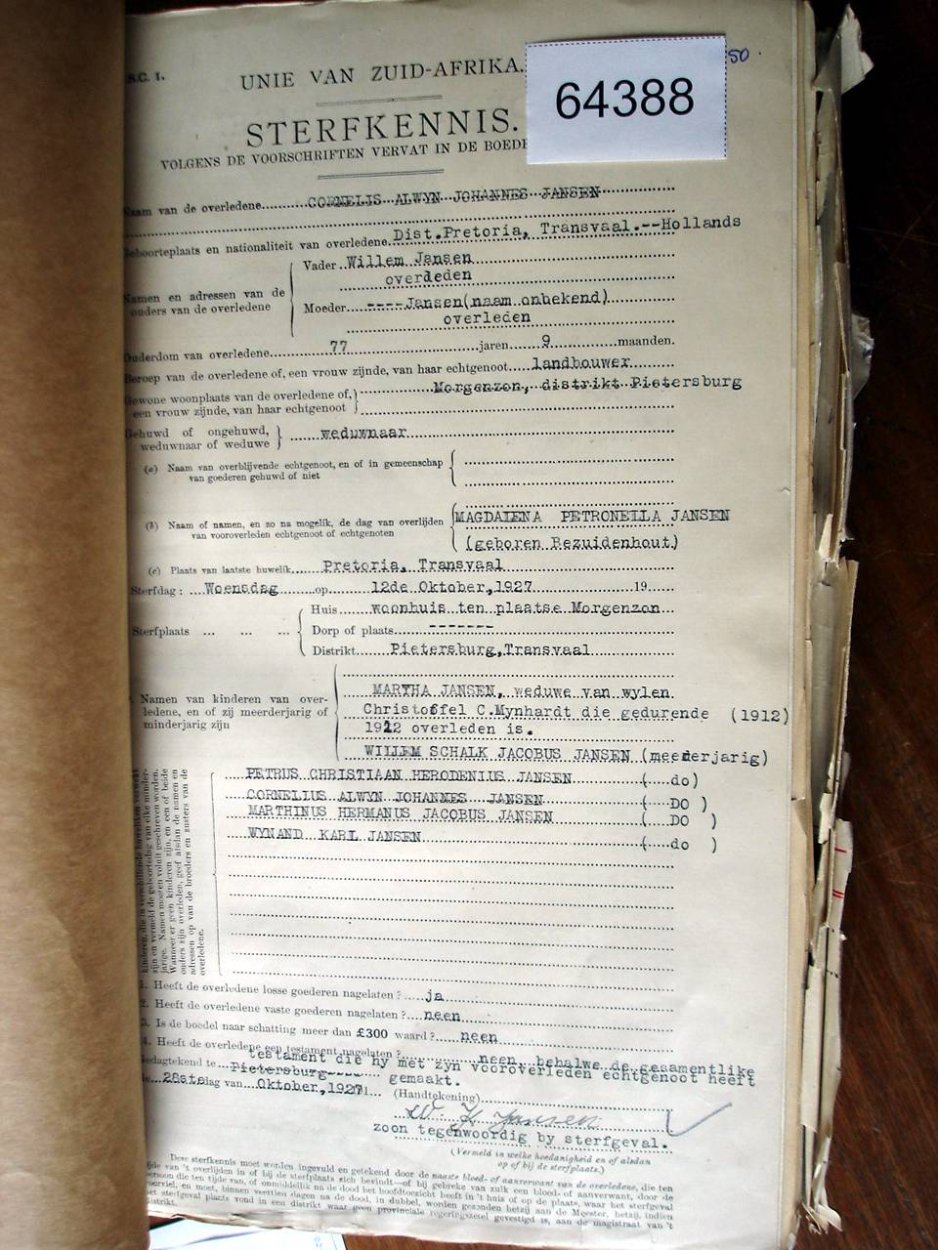 S.C. 1.
50
UNIE VAN ZUID-AFRIKA.
64388
STERFKENNIS.
VOLGENS DE VOORSCHRIFTEN VERVAT IN DE BOEDE
Naam van de overledene CORNELIS ALWYN JOHANNES JANSEN
Geboorteplaats en nationaliteit van overledene. Dist.Pretoria, Transvaal.--Hollands
Namen en adressen van de ouders van de overledene
Vader Willem Jansen
overdeden
Moeder ----Jansen(naam onbekend)
overleden
Ouderdom van overledene 77 jaren 9 maanden.
Beroep van de overledene of, een vrouw zijnde, van haar echtgenoot landbouwer
Gewone woonplaats van de overledene of, een vrouw zijnde, van haar echtgenoot
Morgenzon, distrikt Pietersburg
Gehuwd of ongehuwd, weduwnaar of weduwe
weduwnaar
(a) Naam van overblijvende echtgenoot, en of in gemeenschap
van goederen gehuwd of niet
(b) Naam of namen, en zo na mogelik, de dag van overlijden
van vooroverleden echtgenoot of echtgenoten
MAGDALENA PETRONELLA JANSEN
(geboren Bezuidenhout)
(c) Plaats van laatste huwelik Pretoria, Transvaal
Sterfdag: Woensdag op 12de Oktober,1927 19
Sterfplaats ... ... ...
Huis woonhuis ten plaatse Morgenzon
Dorp of plaats -------
Distrikt Pietersburg,Transvaal
Namen van kinderen van over-
ledene, en of zij meerderjarig of
minderjarig zijn
MARTHA JANSEN, weduwe van wylen
Christoffel C.Mynhardt die gedurende (1912)
1912 overleden is.
WILLEM SCHALK JACOBUS JANSEN (meerderjarig)
PETRUS CHRISTIAAN HERODENIUS JANSEN ( do)
CORNELIUS ALWYN JOHANNES JANSEN ( DO )
MARTHINUS HERMANUS JACOBUS JANSEN ( DO )
WYNAND KARL JANSEN ( do )
zijn en vermeld de geboortedag van elke minder-
jarige. Namen moeten voluit geschreven worden.
Wanneer er geen kinderen zijn, en een of beide
ouders zijn overleden, geef alsdan de namen en
adressen op van de broeders en zusters van de
overledene.
1. Heeft de overledene losse goederen nagelaten? ja
2. Heeft de overledene vaste goederen nagelaten? neen
3. Is de boedel naar schatting meer dan £300 waard? neen
4. Heeft de overledene een testament nagelaten? neen, behalwe de gesamentlike
testament die hy met zyn vooroverleden echtgenoot heeft
Gedagtekend te Pietersburg gemaakt.
28ste dag van Oktober,1927
(Handtekening)
W. K. Jansen
zoon tegenwoordig by sterfgeval.
(Vermeld in welke hoedanigheid en of alsdan
op of bij de sterfplaats.)
Deze sterfkennis moet worden ingevuld en getekend door de naaste bloed- of aanverwant van de overledene, die ten
tijde van 't overlijden in of bij de sterfplaats zich bevindt—of bij gebreke van zulk een bloed- of aanverwant, door de
persoon die ten tijde van, of onmiddellik na de dood het hoofdtoezicht heeft in 't huis of op de plaats, waar het sterfgeval
en moet, binnen veertien dagen na de dood, in dubbel, worden gezonden hetzij aan de Meester, hetzij, indien
het sterfgeval plaats vond in een distrikt waar geen provinciale regeringszetel gevestigd is, aan de magistraat van 't
distrikt.